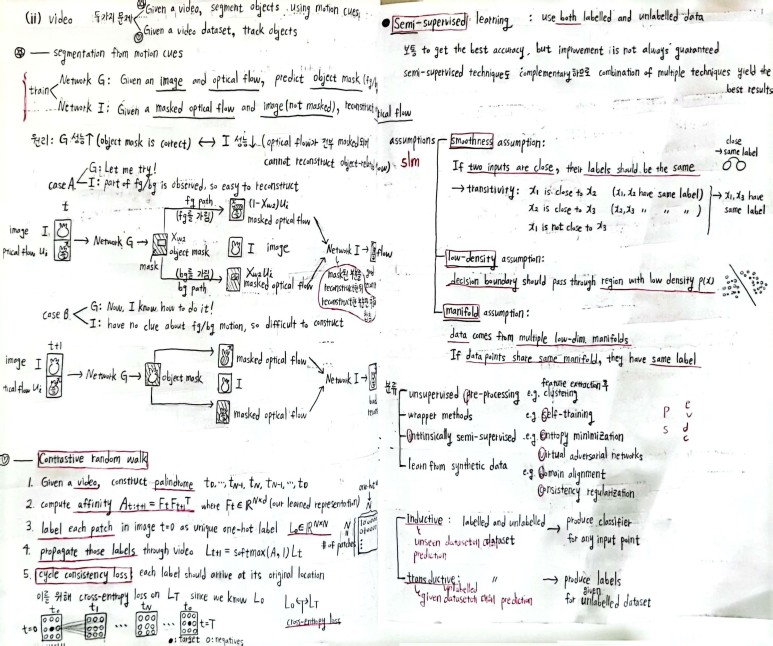 (ii) video 두가지 문제
ⓐ Given a video, segment objects using motion cues
ⓑ Given a video dataset, track objects
ⓐ — segmentation from motion cues
train
Network G: Given an image and optical flow, predict object mask (fg/b
Network I: Given a masked optical flow and image (not masked), reconstruct
tical flow
원리: G 성능↑ (object mask is correct) ↔ I 성능↓ (optical flow가 전부 masked되어
cannot reconstruct object-
case A
G: Let me try!
I: part of fg/bg is observed, so easy to reconstruct
t
fg path
(fg를 가림)
(1-Xw2)Ui
masked optical flow
image I
ptical flow Ui
→ Network G →
Xw2
object mask
mask
I image
Network I → flow
(bg를 가림)
bg path
Xw2 Ui
masked optical flow
case B
G: Now, I know how to do it!
I: have no clue about fg/bg motion, so difficult to construct
t+1
image I
tical flow Ui
→ Network G →
object mask
masked optical flow
I
masked optical flow
Network I →
ⓑ — Contrastive random walk
1. Given a video, construct palindrome to, ..., tN-1, tN, tN-1, ..., to
2. compute affinity At:t+1 = Ft Ft+1ᵀ where Ft ∈ R^N×d (our learned representation)
3. label each patch in image t=0 as unique one-hot label Lo ∈ R^N×N
N
N
# of patches
4. propagate those labels through video Lt+1 = softmax(A, 1) Lt
5. cycle consistency loss: each label should arrive at its original location
이를 위해 cross-entropy loss on LT since we know Lo
Lo ↔ LT
cross-entropy loss
to t1 tN to
t=0 ... ... t=T
●: target o: negatives
● Semi-supervised learning : use both labelled and unlabelled data
보통 to get the best accuracy, but improvement is not always guaranteed
semi-supervised technique들 complementary하므로 combination of multiple techniques yield the
best results
assumptions
slm
smoothness assumption:
close
→ same label
If two inputs are close, their labels should be the same
→ transitivity: x1 is close to x2 (x1, x2 have same label)
x2 is close to x3 (x2, x3 〃 〃 〃)
x1 is not close to x3
→ x1, x3 have
same label
low-density assumption:
decision boundary should pass through region with low density p(x)
manifold assumption:
data comes from multiple low-dim. manifolds
If data points share same manifold, they have same label
분류
feature extraction후
unsupervised pre-processing e.g. clustering
wrapper methods e.g. self-training
Intrinsically semi-supervised e.g. entropy minimization
virtual adversarial networks
learn from synthetic data e.g. domain alignment
consistency regularization
p e
v
s d
c
Inductive : labelled and unlabelled dataset → produce classifier
for any input point
unseen dataset
prediction
transductive : 〃 → produce labels
for given unlabelled dataset
unlabelled
given dataset prediction